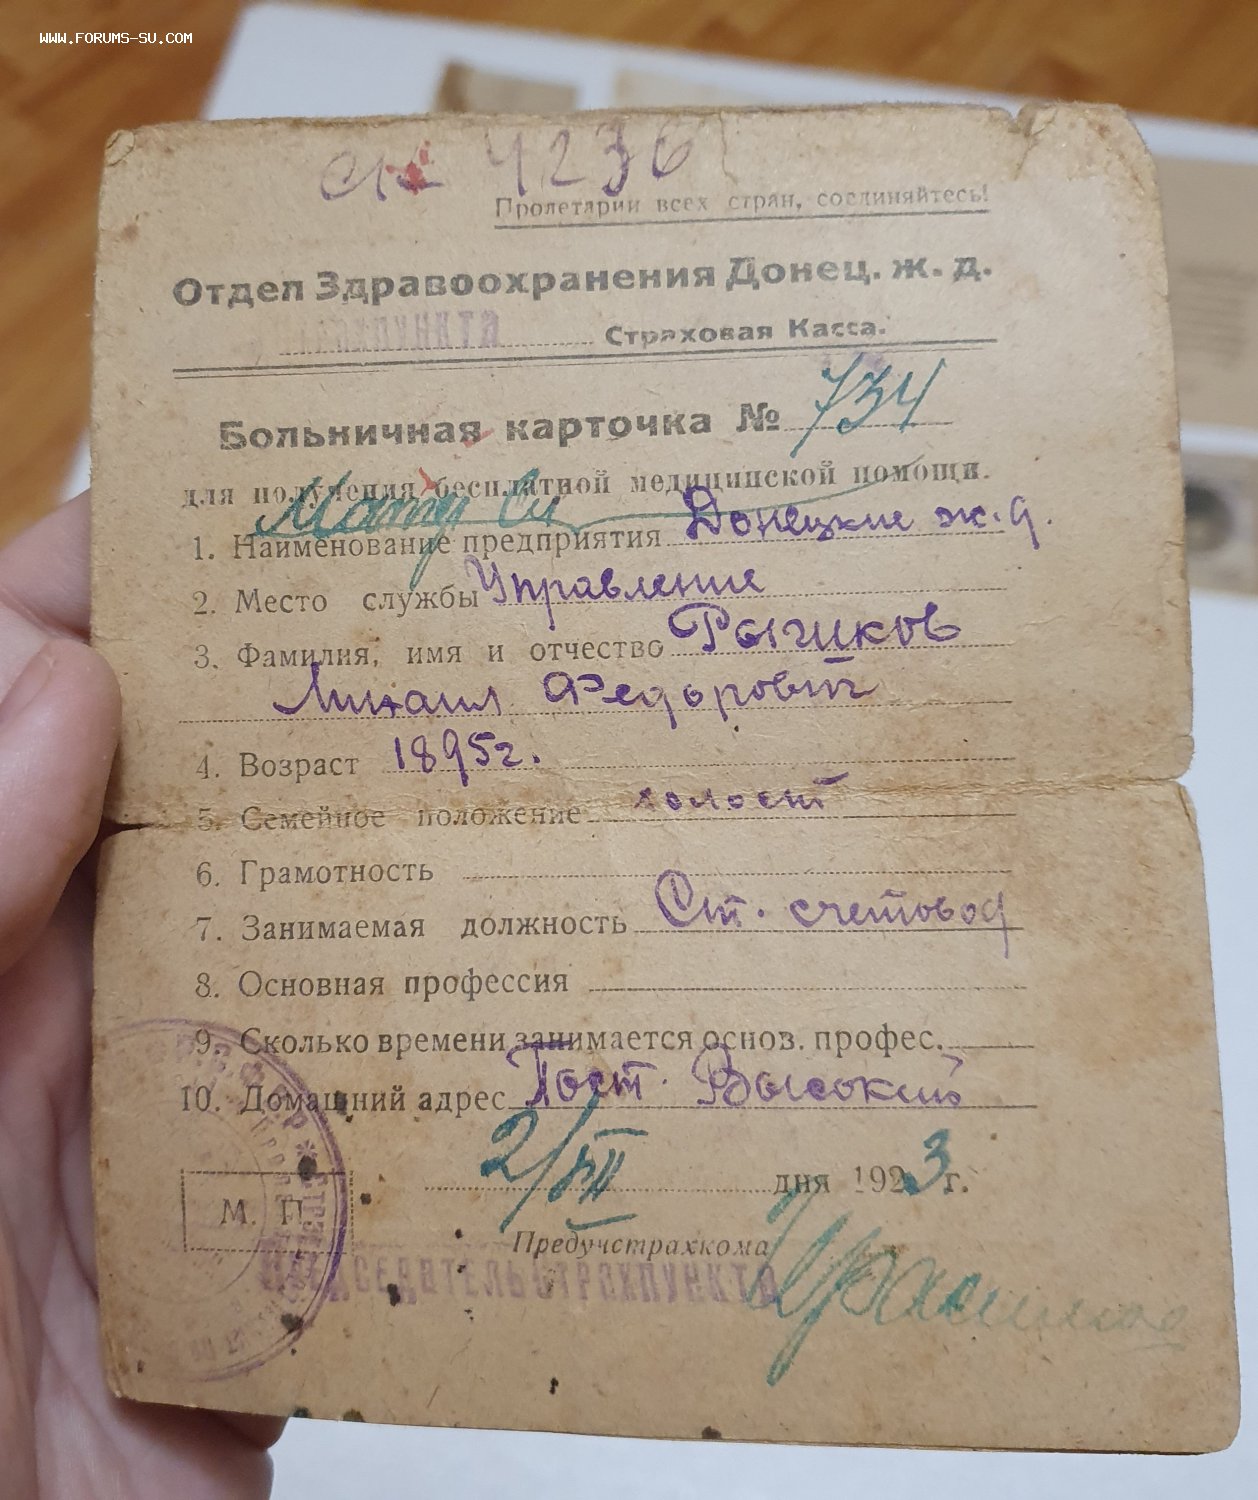 WWW.FORUMS-SU.COM
4236
Пролетарии всех стран, соединяйтесь!
Отдел Здравоохранения Донец. ж. д.
СТРАХПУНКТА Страховая Касса.
Больничная карточка № 734
для получения бесплатной медицинской помощи.
1. Наименование предприятия Донецкие ж.д.
2. Место службы Управление
3. Фамилия, имя и отчество
Михаил Федорович
4. Возраст 1895г.
5. Семейное положение холост
6. Грамотность
7. Занимаемая должность Ст. счетовод
8. Основная профессия
9. Сколько времени занимается основ. профес.
10. Домашний адрес Пост. Высокий
М. П.
2/VII дня 1923 г.
Предучстрахкома
ПРЕДСЕДАТЕЛЬ СТРАХПУНКТА